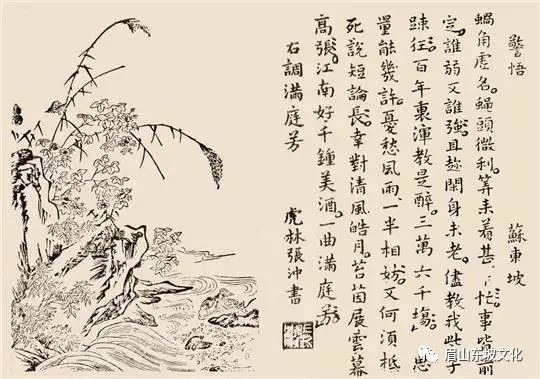 警悟 蘇東坡
蝸角虛名。蠅頭微利。筭来着甚忙。事皆前
定。誰弱又誰強。且趂閑身未老。儘教我些子
踈狂。百年裏渾教是醉。三萬六千塲。思
量能幾許。憂愁風雨一半相妨。又何須抵
死說短論長。幸對清風皓月。苔茵展雲幕
高張。江南好千鍾美酒。一曲滿庭芳
右調滿庭芳 虎林張沖書
眉山东坡文化